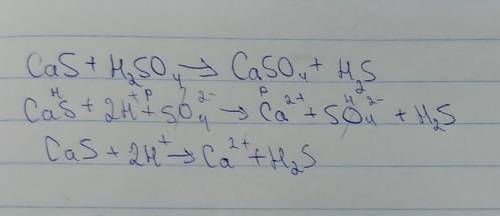 CaS + H₂SO₄ → CaSO₄ + H₂S
CaS^н + 2H⁺ + SO₄²⁻ → Ca²⁺ + SO₄²⁻ + H₂S
CaS + 2H⁺ → Ca²⁺ + H₂S